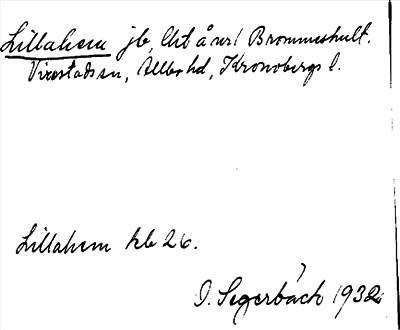 Lillahem jb, lht å nr 1 Brommeshult.
Virestads sn, Allbo hd, Kronobergs l.
Lillahem kb 26.
O. Segerbäck 1932